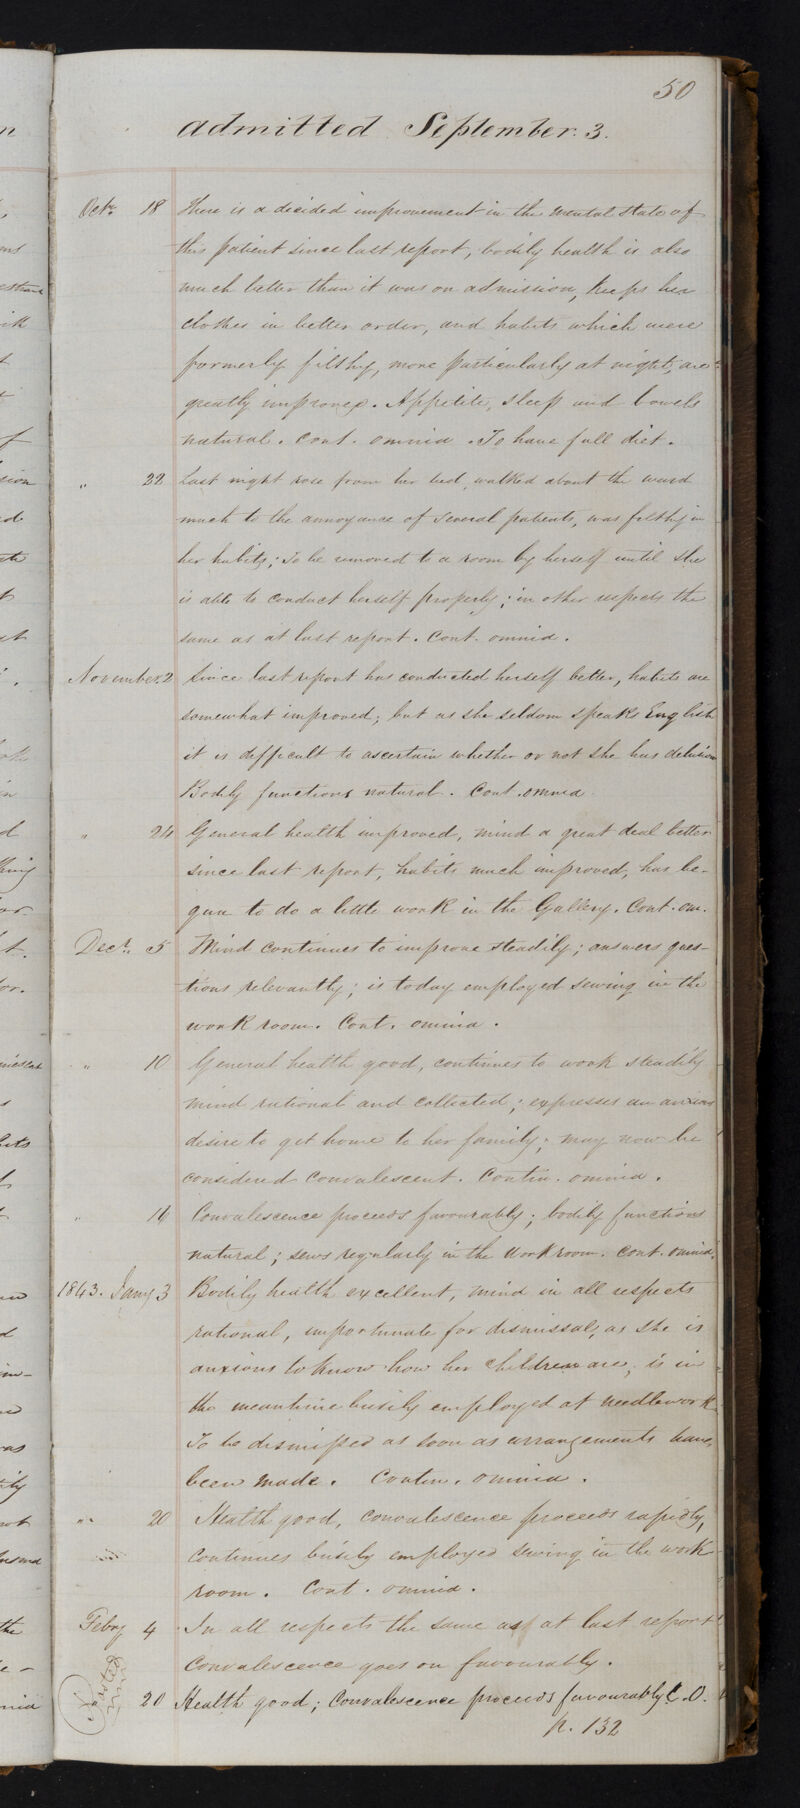 50
admitted September. 3.
Octr. 18 There is a decided improvement in the mental state of
this patient since last report, bodily health is also
much better than it was on admission, keeps her
clothes in better order, and habits which were
formerly filthy, more particularly at night, are
greatly improved. Appetite, sleep and bowels
natural. Cont. omnia. To have full diet.
" 22 Last night rose from her bed, walked about the ward
much to the annoyance of several patients, was filthy in
her habits; To be removed to a room by herself until she
is able to conduct herself properly; in other respects the
same as at last report. Cont. omnia.
November. 2 Since last report has conducted herself better, habits are
somewhat improved; but as she seldom speaks English
it is difficult to ascertain whether or not she has delusion
Bodily functions natural. Cont. omnia.
" 24 General health improved, mind a great deal better
since last report, habits much improved, has be-
gun to do a little work in the Gallery. Cont. om.
Decr. 5 Mind continues to improve steadily; answers ques-
tions relevantly; is today employed sewing in the
work room. Cont. omnia.
" 10 General health good, continues to work steadily
mind rational and collected; expresses an anxious
desire to get home to her family; may now be
considered convalescent. Contin. omnia.
" 16 Convalescence proceeds favourably; bodily functions
natural; sews regularly in the Workroom. Cont. omnia.
1843. Jany 3 Bodily health excellent, mind in all respects
rational, importunate for dismissal, as she is
anxious to know how her children are; is in
the meantime busily employed at needlework
To be dismissed as soon as arrangements have
been made. Contin. omnia.
" 20 Health good, convalescence proceeds rapidly,
continues busily employed sewing in the work
room. Cont. omnia.
Febry 4 In all respects the same as at last report
Convalescence goes on favourably.
Posted
20 Health good; Convalescence proceeds favourably C.O.
p. 132